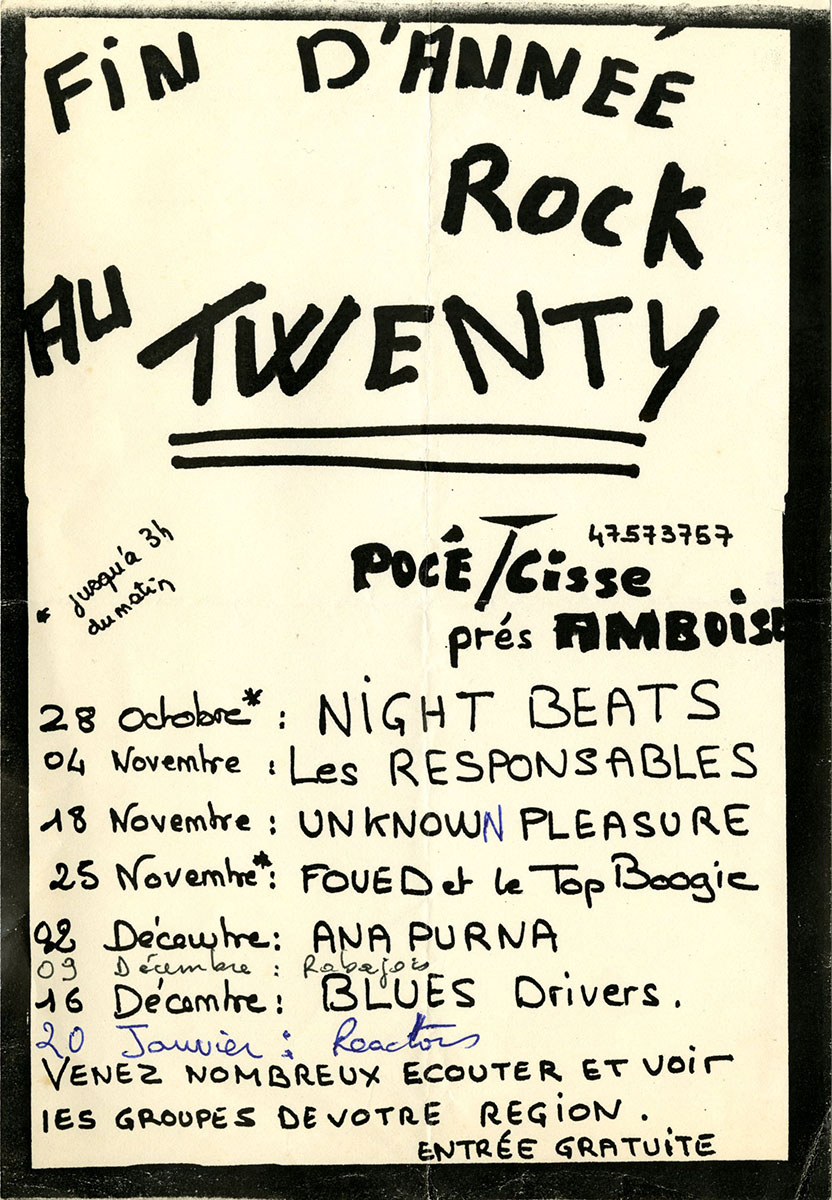 FiN D'ANNÉE
ROCK
AU TWENTY
* Jusqu'à 3h
du matin
47573757
POCÉ/Cisse
prés AMBOiSE
28 Octobre* : NiGHT BEATS
04 Novembre : Les RESPONSABLES
18 Novembre : UNKNOWN PLEASURE
25 Novembre* : FOUED et le Top Boogie
02 Décembre : ANA PURNA
09 Décembre : Rabajois
16 Décembre : BLUES Drivers.
20 Janvier : Reactors
VENEZ NOMBREUX ECOUTER ET VOir
lES GROUPES DE VOTRE REGION.
ENTRÉE GRATUITE